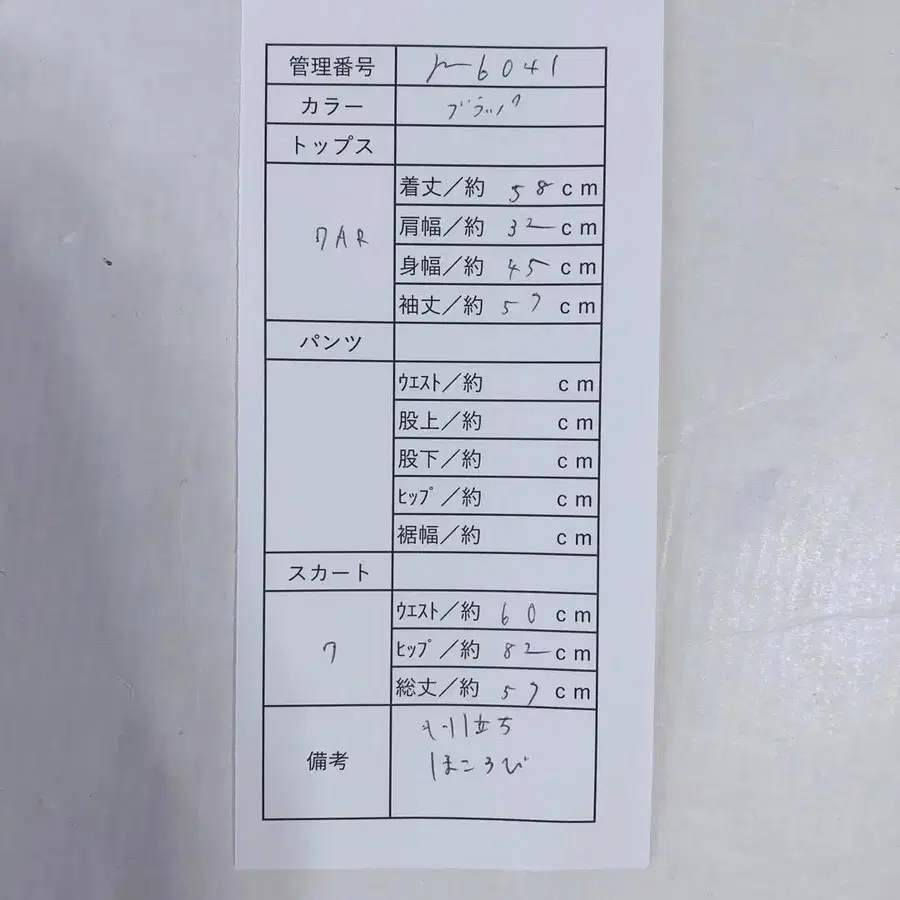 管理番号 m6041
カラー ブラック
トップス
7AR
着丈／約 58 cm
肩幅／約 32 cm
身幅／約 45 cm
袖丈／約 57 cm
パンツ
ｳｴｽﾄ／約 cm
股上／約 cm
股下／約 cm
ﾋｯﾌﾟ／約 cm
裾幅／約 cm
スカート
7
ｳｴｽﾄ／約 60 cm
ﾋｯﾌﾟ／約 82 cm
総丈／約 57 cm
備考
毛羽立ち
ほころび